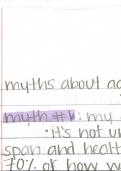 myths about ag
myth #1: my
• it's not un
span and healt
70% of how w